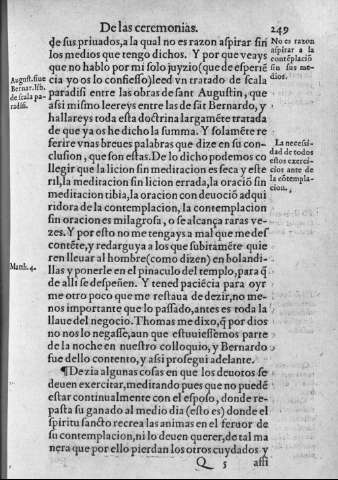 De las ceremonias. 249
de sus priuados, a la qual no es razon aspirar sin
los medios que tengo dichos. Y por que veays
que no hablo por mi solo juyzio (que de esperiē
cia yo os lo confiesso) leed vn tratado de scala
paradisi entre las obras de sant Augustin, que
assi mismo leereys entre las de sāt Bernardo, y
hallareys toda esta doctrina largamēte tratada
de que ya os he dicho la summa. Y solamēte re
ferire vnas breues palabras que dize en su con-
clusion, que son estas. De lo dicho podemos co
llegir que la licion sin meditacion es seca y este
ril, la meditacion sin licion errada, la oraciō sin
meditacion tibia, la oracion con deuociō adqui
ridora de la contemplacion, la contemplacion
sin oracion es milagrosa, o se alcança raras ve-
zes. Y por esto no me tengays a mal que me des
contēte, y redarguya a los que subitamēte quie
ren lleuar al hombre (como dizen) en bolandi-
llas y ponerle en el pinaculo del templo, para q̄
de alli se despeñen. Y tened paciēcia para oyr
me otro poco que me restaua de dezir, no me-
nos importante que lo passado, antes es toda la
llaue del negocio. Thomas me dixo, q̄ por dios
no nos lo negasse, aun que estuuiessemos parte
de la noche en nuestro colloquio, y Bernardo
fue dello contento, y assi prosegui adelante.
¶Dezia algunas cosas en que los deuotos se
deuen exercitar, meditando pues que no puedē
estar continualmente con el esposo, donde re-
pasta su ganado al medio dia (esto es) donde el
spiritu sancto recrea las animas en el feruor de
su contemplacion, ni lo deuen querer, de tal ma
nera que por ello pierdan los otros cuydados y
Q 5 assi
No es razon
aspirar a la
contēplaciō
sin sus me-
dios.
August. siue
Bernar. lib.
de scala pa-
radisi.
La necesi-
dad de todos
estos exerci-
cios ante de
la cōtempla-
cion.
Matth. 4.